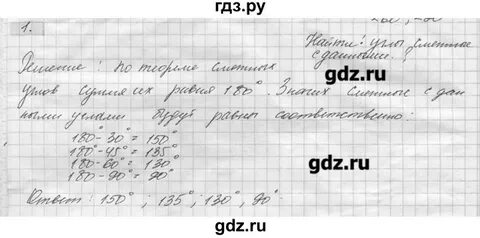 гдз.ру
1.
Найти: углы смежные
с данными.
Решение: по теореме смежных
углов сумма их равна 180°. Значит смежные с дан
ными углами будут равны соответственно:
180-30° = 150°
180°-45° = 135°
180-60° = 130°
180-90° = 90°
Ответ: 150°, 135°; 130°, 90°
gdz.ru
gdz.ru
gdz.ru
gdz.ru